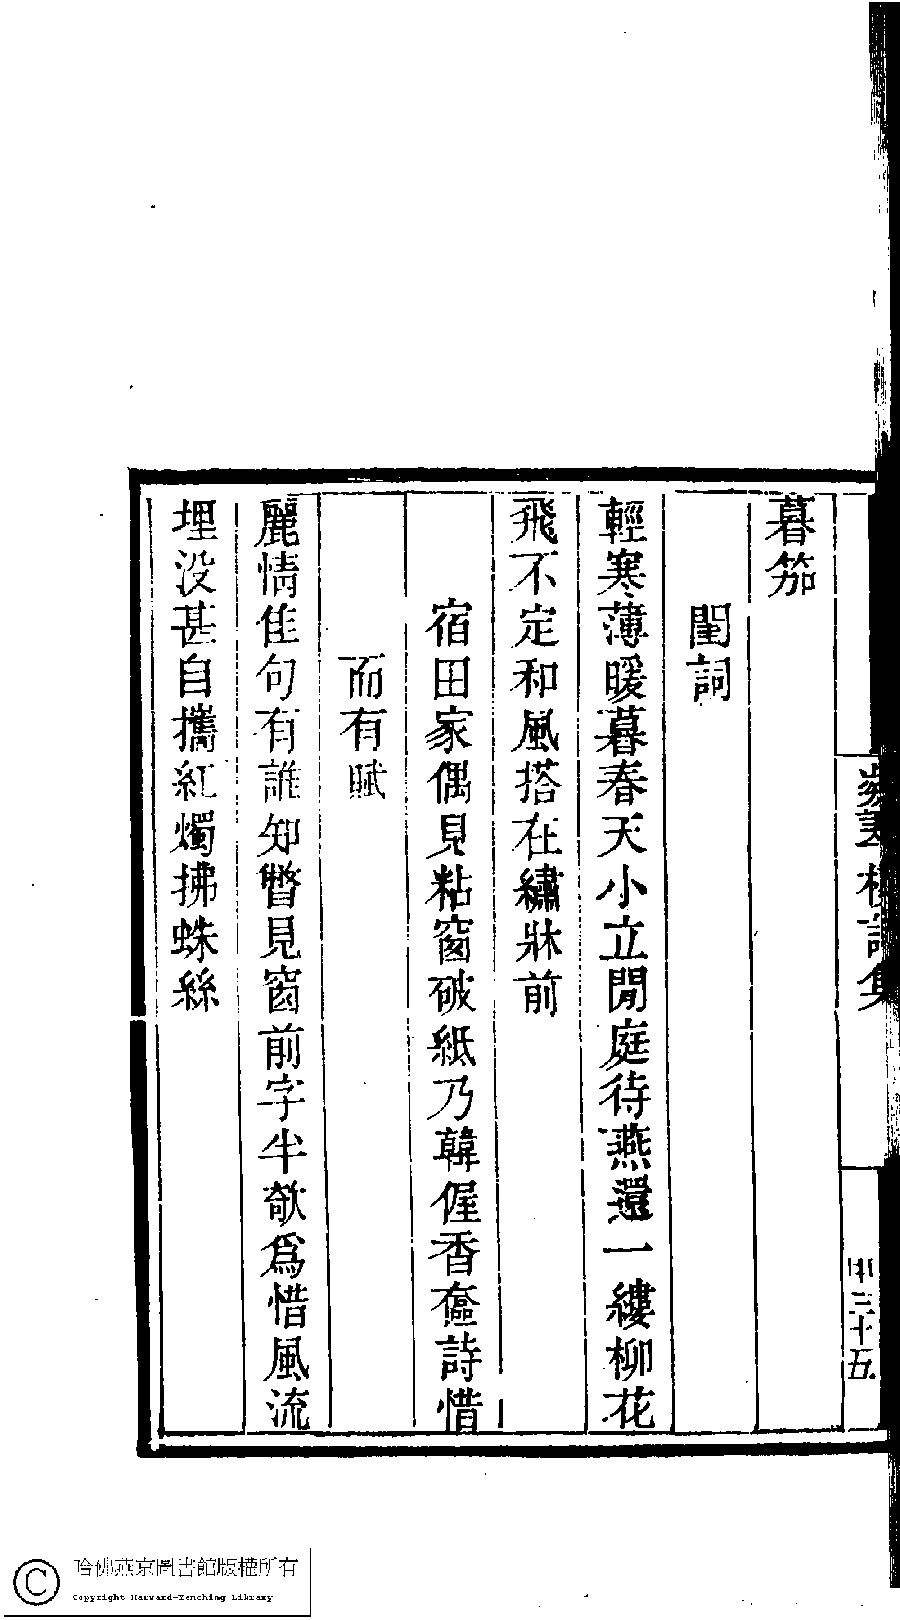 暮笳
閨詞
輕寒薄暖暮春天小立閒庭待燕還一縷柳花
飛不定和風搭在繡牀前
宿田家偶見粘窗破紙乃韓偓香奩詩惜
而有賦
麗情佳句有誰知瞥見窗前字半欹爲惜風流
埋没甚自攜紅燭拂蛛絲
樓詩集
三十五
哈佛燕京圖書館版權所有
Copyright Harvard-Yenching Library